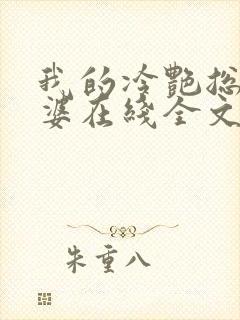 我的冷艷总
婆在綫全文
朱重八